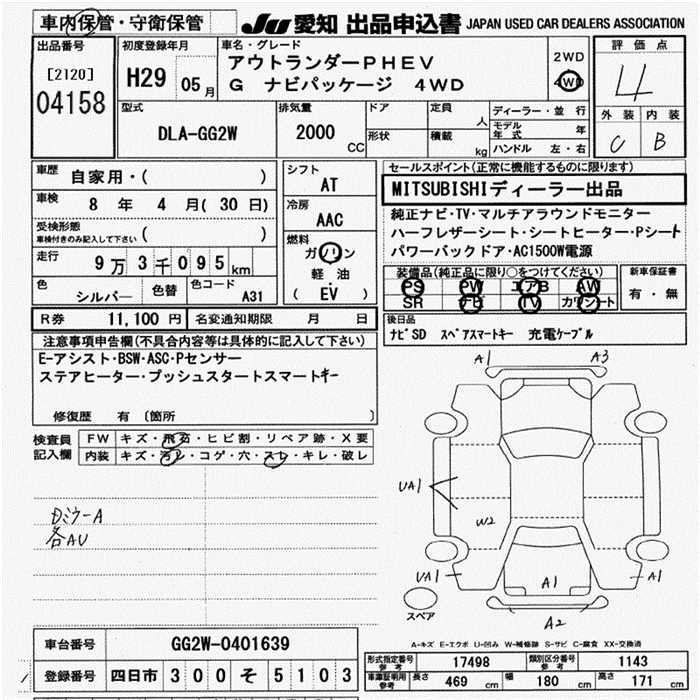 車内保管・守衛保管 JU 愛知 出品申込書 JAPAN USED CAR DEALERS ASSOCIATION
出品番号 [2120] 04158
初度登録年月 H29 05月
車名・グレード
アウトランダーPHEV
G ナビパッケージ 4WD
2WD
4WD
評価点 4
外装 内装
C B
型式 DLA-GG2W
排気量 2000 CC
ドア 形状
定員 人
積載 kg
ディーラー・並行
モデル年式 年
ハンドル 左・右
車歴 自家用・( )
車検 8 年 4 月( 30 日)
受検形態
車検付きのみ記入して下さい ( )
走行 9万3千095km
色 シルバー 色替 色コード A31
シフト AT
冷房 AAC
燃料 ガソリン
軽油
( EV )
セールスポイント(正常に機能するものに限ります)
MITSUBISHIディーラー出品
純正ナビ・TV・マルチアラウンドモニター
ハーフレザーシート・シートヒーター・Pシート
パワーバックドア・AC1500W電源
装備品(純正品に限り○をつけてください)
PS PW エアB AW
SR ナビ TV カワシート
新車保証書
有・無
R券 11,100 円 名変通知期限 月 日
後日品
ナビSD スペアスマートキー 充電ケーブル
注意事項申告欄(不具合内容等は具体的に記入して下さい)
E-アシスト・BSW・ASC・Pセンサー
ステアヒーター・プッシュスタートスマートキー
修復歴 有 〔箇所 〕
検査員記入欄
FW キズ・飛石・ヒビ割・リペア跡・X要
内装 キズ・汚レ・コゲ・穴・スレ・キレ・破レ
Dミラー A
各AU
A1 A3
UA1
W2
UA1 A1 A1
スペア
A2
A-キズ E-エクボ U-凹み W-補修跡 S-サビ C-腐食 XX-交換済
車台番号 GG2W-0401639
登録番号 四日市 300 そ 5103
形式指定番号 参考 17498 類別区分番号 参考 1143
車庫証明用 参考 長さ 469 cm 幅 180 cm 高さ 171 cm